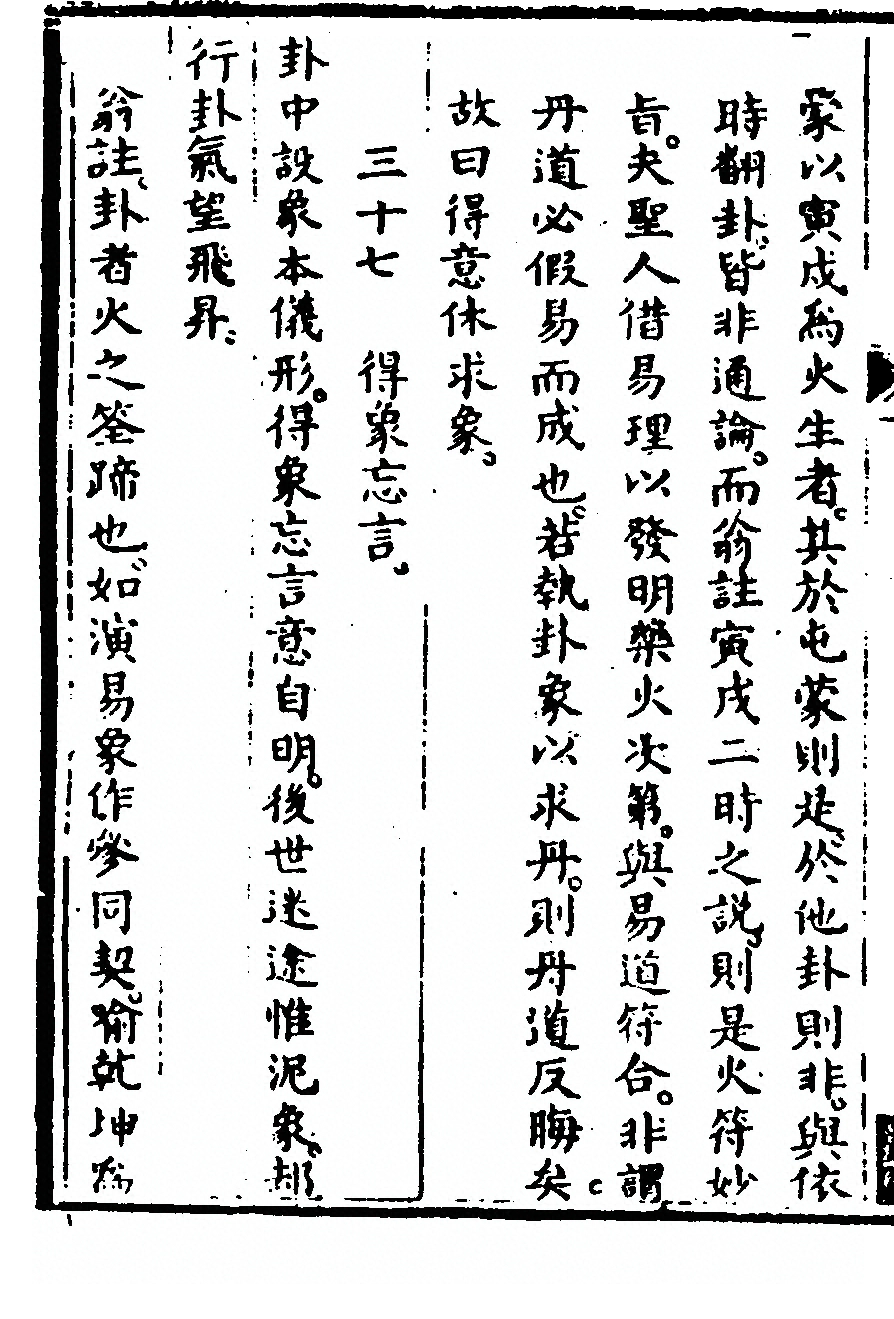 蒙以寅戌為火生者。其於屯蒙則是。於他卦則非。與依
時翻卦。皆非通論。而翁註寅戌二時之說。則是火符妙
旨。夫聖人借易理以發明藥火次第。與易道符合。非謂
丹道必假易而成也。若執卦象以求丹。則丹道反晦矣。
故曰得意休求象。
三十七 得象忘言。
卦中設象本儀形。得象忘言意自明。後世迷途惟泥象。却
行卦氣望飛昇。
翁註。卦者火之筌蹄也。如演易象作參同契。喻乾坤為